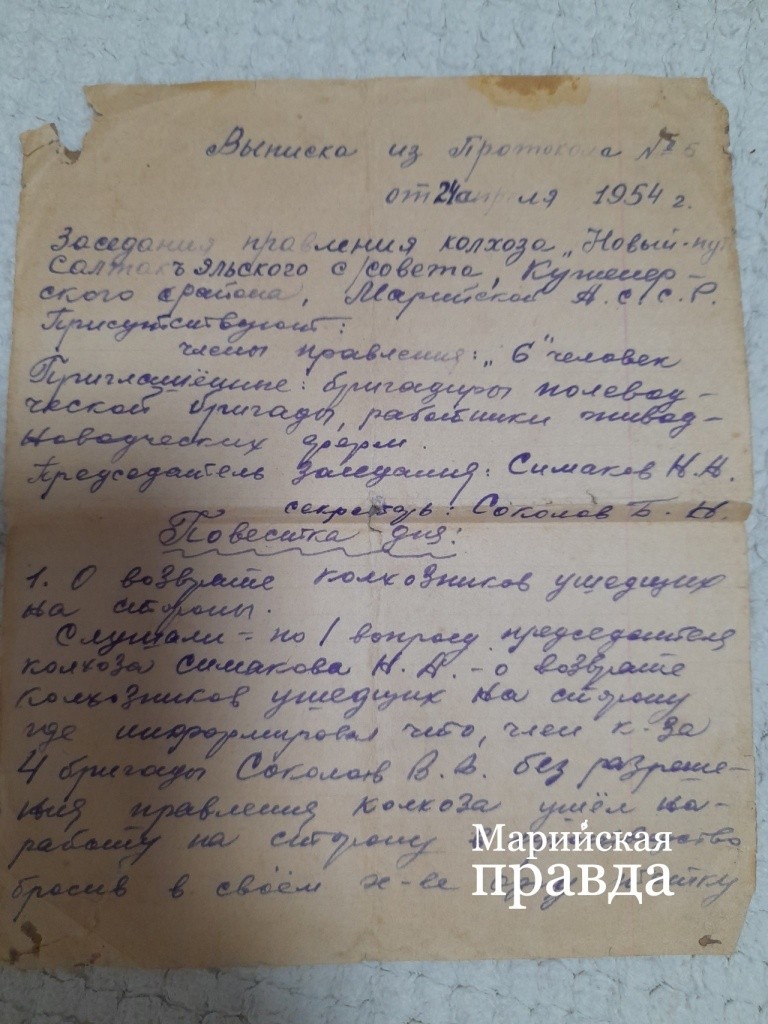 Выписка из Протокола № 5
от 24 апреля 1954 г.
Заседания правления колхоза „Новый-пут
Салтакъяльского с/совета, Куженер-
ского района, Марийской А.С.С.Р.
Присутствуют:
члены правления: „6" человек
Приглашённые: бригадиры полевод-
ческой бригады, работники живод-
новодческих ферм.
Председатель заседания: Симаков Н.А.
секретарь: Соколов Б. Н.
Повестка дня:
1. О возврате колхозников ушедщих
на стороны.
Слушали = по 1 вопросу председателя
колхоза Симакова Н.А. - о возврате
колхозников ушедщих на сторону
где информировал что, член к-за
4 бригады Соколов В. В. без разреше-
ния правления колхоза ушёл на-
работу на сторону
бросив в своём х-ве одну
Марийская
правда